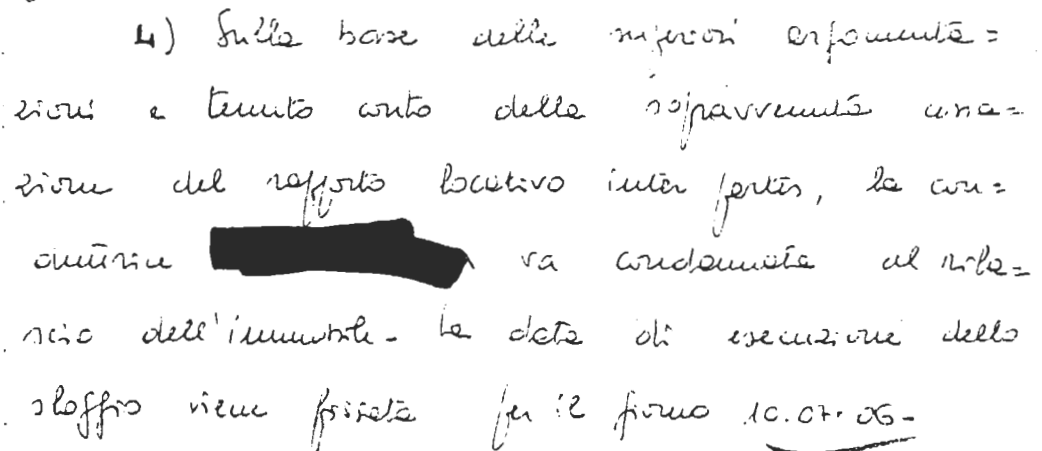 4) Sulla base delle superiori argomenta=
zioni e tenuto conto della sopravvenuta cessa=
zione del rapporto locativo inter partes, la con=
duttrice va condannata al rila=
scio dell'immobile - La data di esecuzione dello
sloggio viene fissata per il giorno 10.07.06-